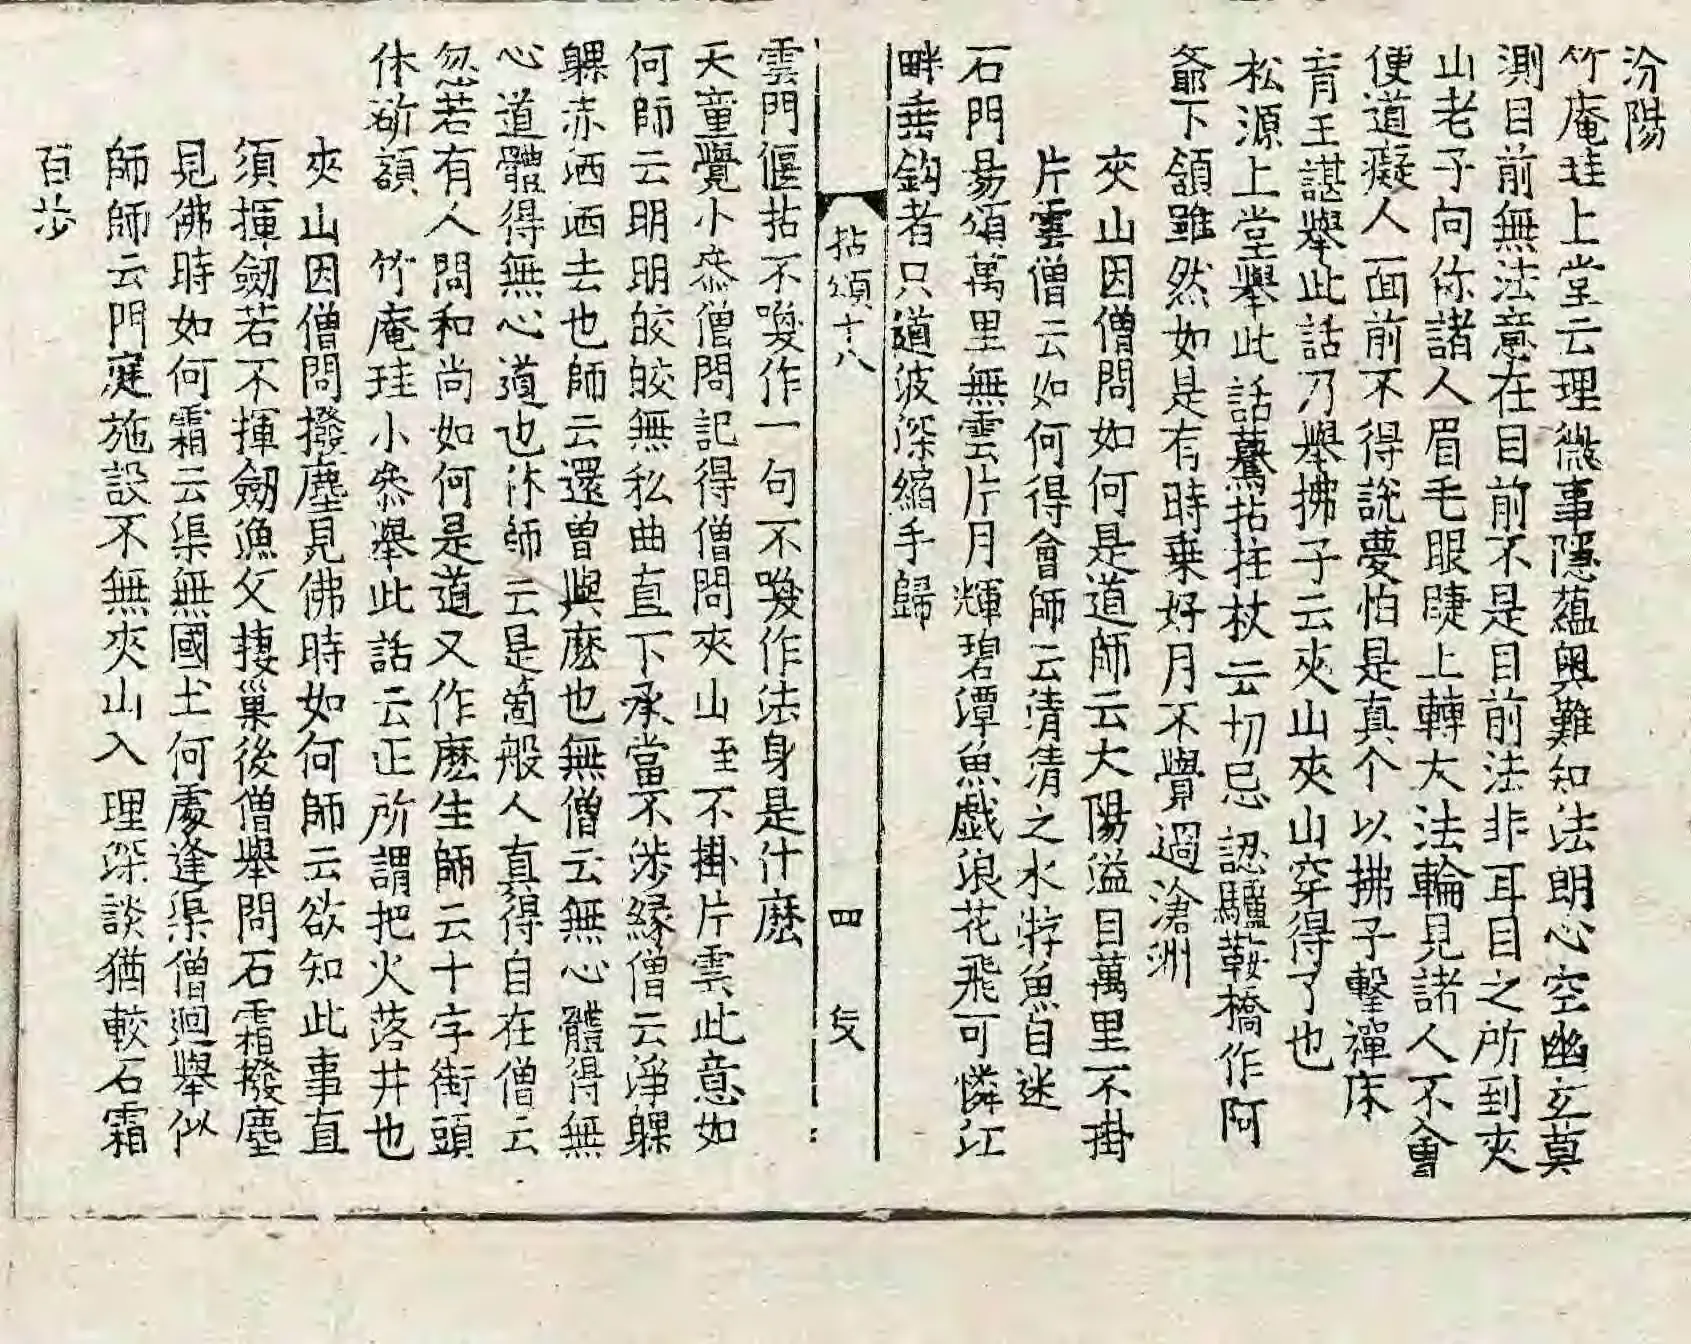 汾陽
竹庵珪上堂云理微事隱蘊奧難知法朗心空幽玄莫
測目前無法意在目前不是目前法非耳目之所到夾
山老子向你諸人眉毛眼睫上轉大法輪見諸人不會
便道癡人面前不得說夢怕是真个以拂子擊禪床
育王諶舉此話乃舉拂子云夾山夾山穿得了也
松源上堂舉此話驀拈拄杖云切忌認驢鞍橋作阿
爺下頷雖然如是有時乗好月不覺過滄洲
夾山因僧問如何是道師云大陽溢目萬里不掛
片雲僧云如何得會師云清清之水㳺魚自迷
石門易頌萬里無雲片月輝碧潭魚戯浪花飛可憐江
畔垂鈎者只道波深縮手歸
拈頌十八 四
雲門偃拈不喚作一句不喚作法身是什麽
天童覺小叅僧問記得僧問夾山至不掛片雲此意如
何師云明明皎皎無私曲直下承當不涉縁僧云淨躶
躶赤洒洒去也師云還曽與麽也無僧云無心體得無
心道體得無心道也休師云是箇般人真得自在僧云
忽若有人問和尚如何是道又作麽生師云十字街頭
休斫額 竹庵珪小叅舉此話云正所謂把火落井也
夾山因僧問撥塵見佛時如何師云欲知此事直
須揮劒若不揮劒漁父捿巢後僧舉問石霜撥塵
見佛時如何霜云渠無國土何處逢渠僧迴舉似
師師云門庭施設不無夾山入理深談猶較石霜
百步